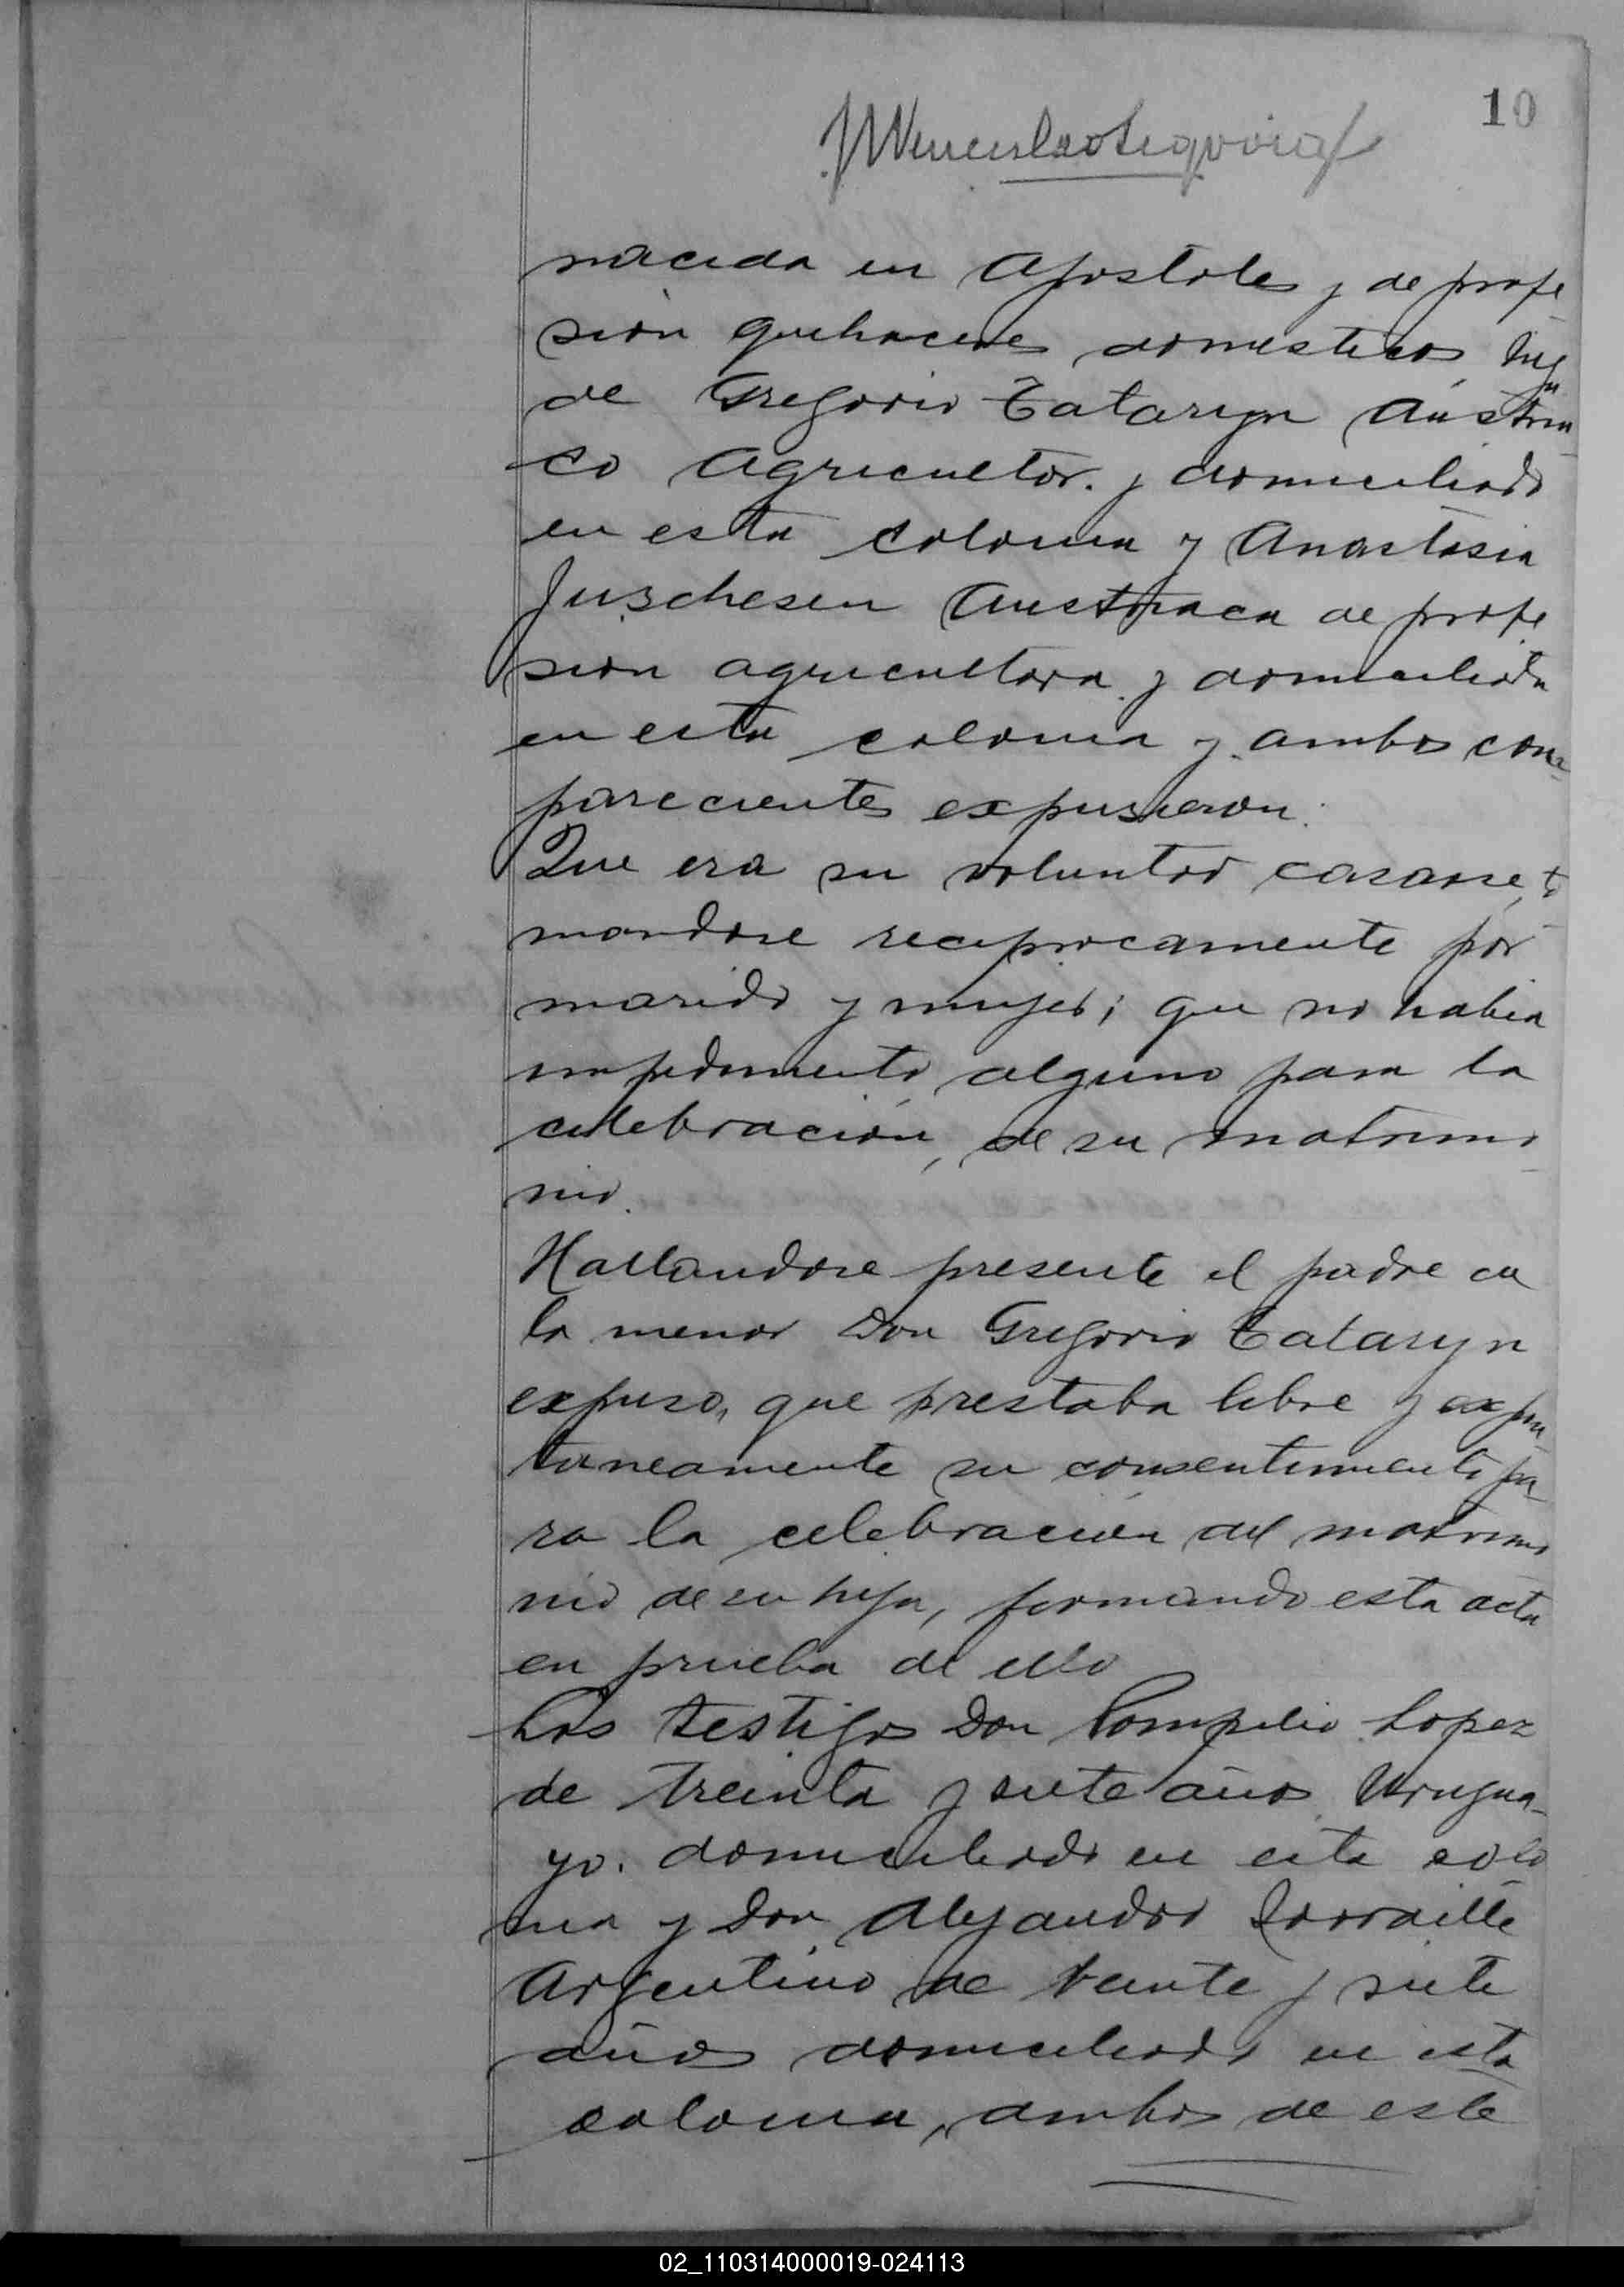 10
nacida en Apostoles y de profe
sión quehaceres domesticos hija
de Gregorio Tataryn Austria
co Agricultor. y domiciliado
en esta colonia y Anastasia
Juschesen Austriaca de profe
sion agricultora y domiciliada
en esta colonia y ambos com
parecientes expusieron:
Que era su voluntad casarse, to
mandose reciprocamente por
marido y mujer; que no habia
impedimento alguno para la
celebración, de su matrimo
nio.
Hallandose presente el padre de
la menor Don Gregorio Tataryn
expuso, que prestaba libre y expon
taneamente su consentimiento pa
ra la celebración del matrimo
nio de su hija, firmando esta acta
en prueba de ello
Los testigos Don Pompilio Lopez
de treinta y siete años Urugua-
yo. domiciliado en esta colo
nia y Don Alejandro
Argentino de veinte y siete
años domiciliado en esta
colonia, ambos de este
02_110314000019-024113